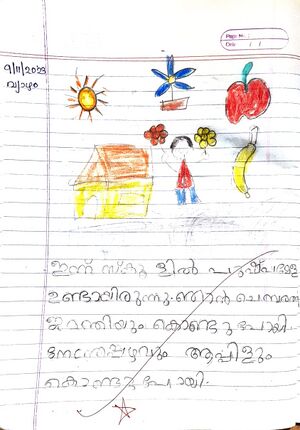 Page No.:
Date / /
9/11/2023
വ്യാഴം
ഇന്ന് സ്കൂളിൽ
ഉണ്ടായിരുന്നു. ഞാൻ ചെമ്പരത്തി
ജമന്തിയും കൊണ്ടു പോയി.
നേന്ത്രപ്പഴവും ആപ്പിളും
കൊണ്ടു പോയി.